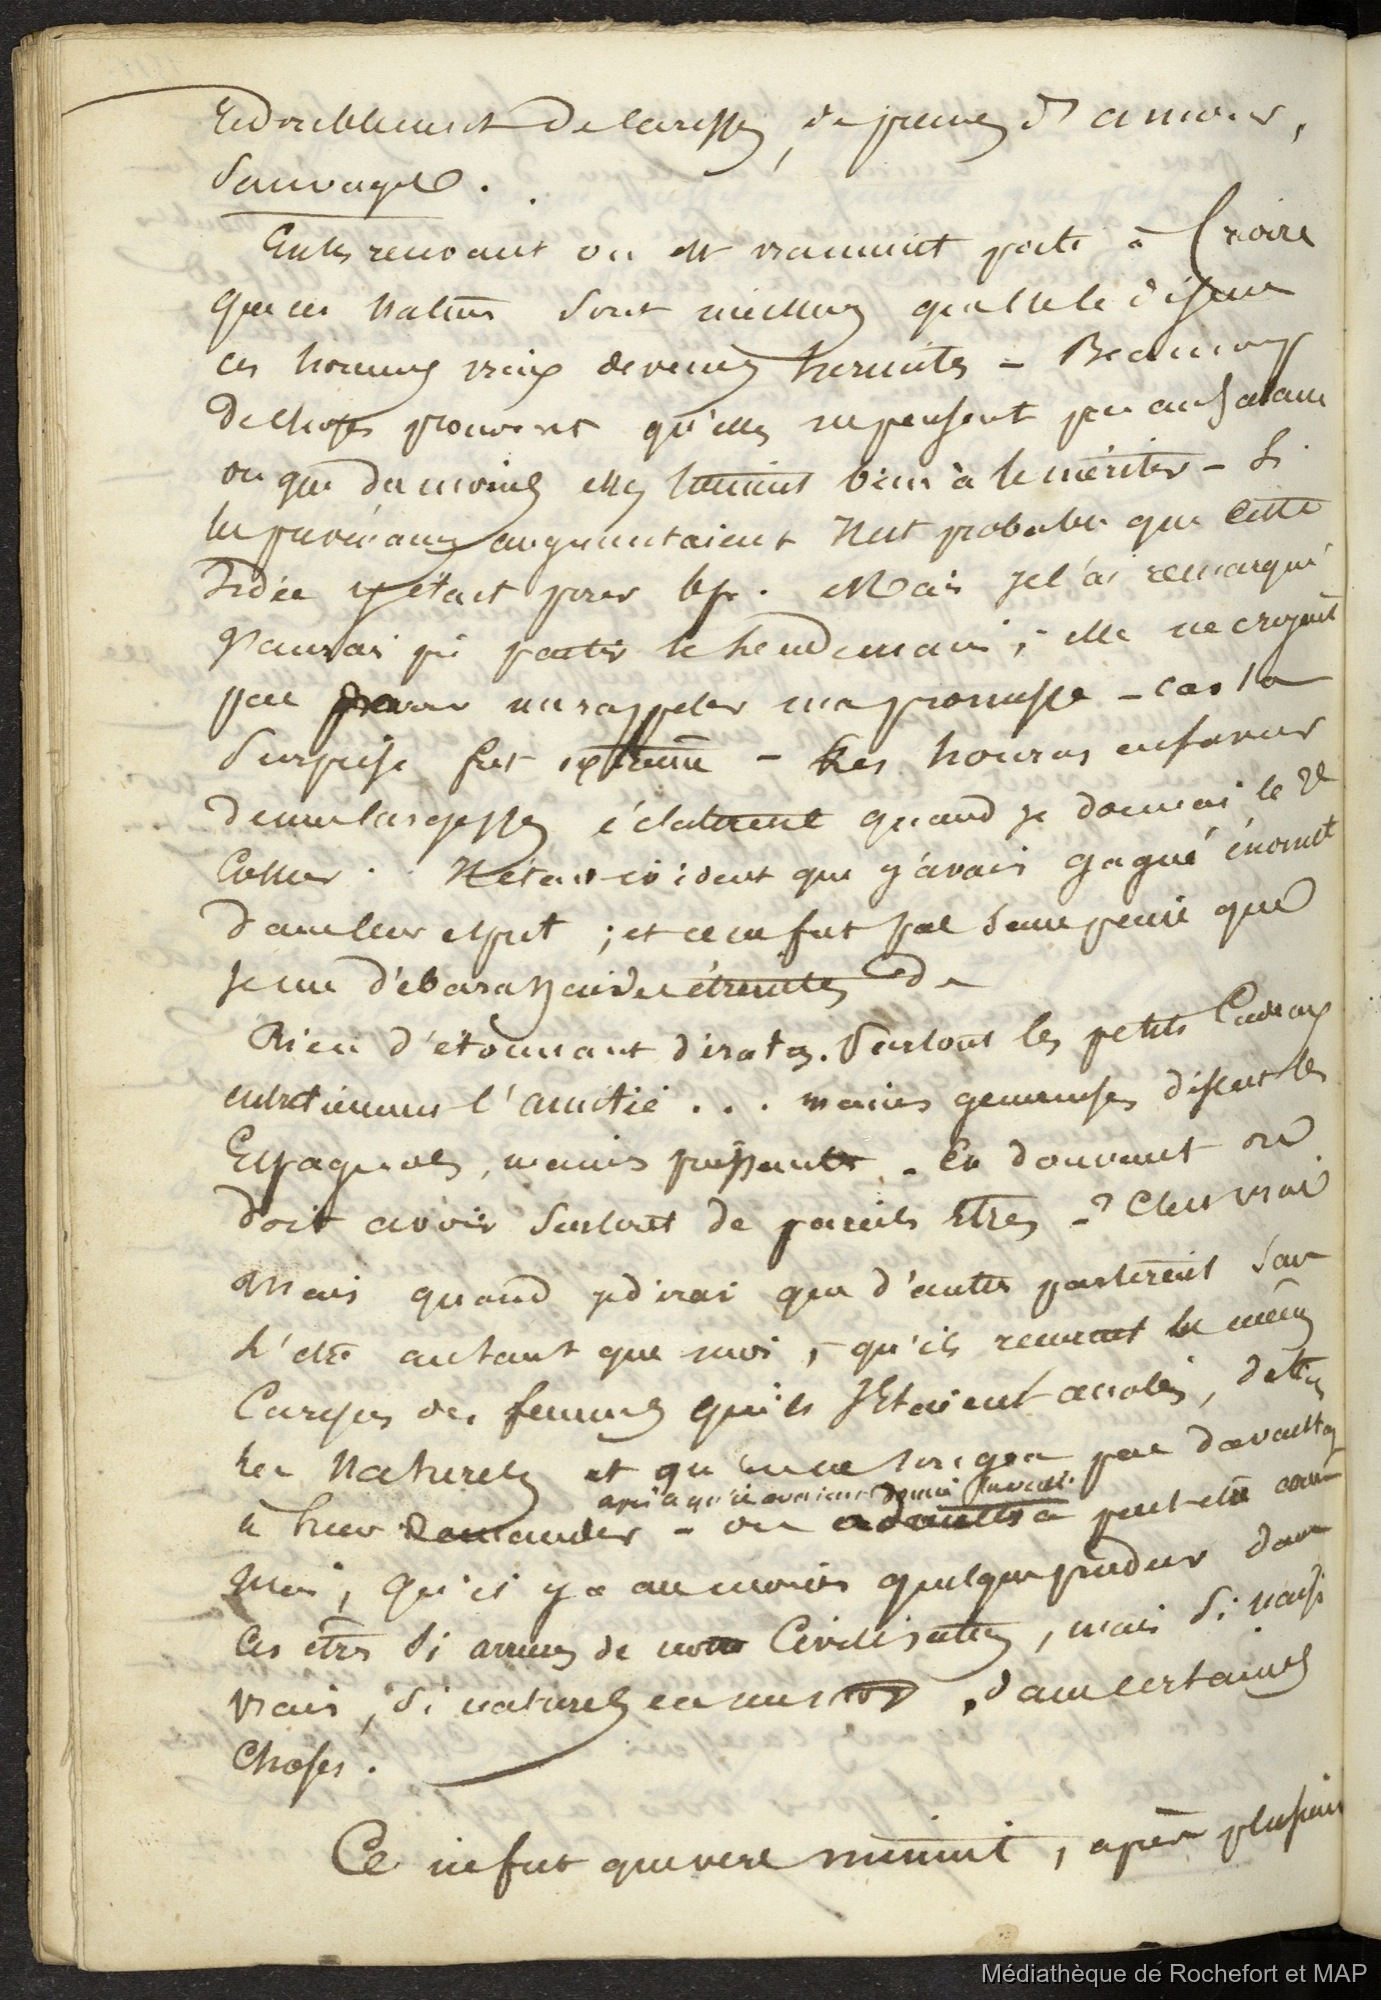 redoublement de caresses, de prunes d'amour,
sauvages.
En les revoyant on est vraiment porté à Croire
que ces natures sont meilleures que ne le disent
ces hommes vieux devenus hermites - Beaucoup
de choses prouvent qu'elles ne pensent pas au salaire
ou que du moins elles tiennent bien à le mériter - Si
les paréos augmentaient Il est probable que cette
Idée y était pour bp. Mais je l'ai remarqué
J'aurais pu partir le lendemain; elle ne croyait
pas me rappeler ma promesse - car la
surprise fut extrême - Les houras en faveur
de mes largesses éclatèrent quand je donnai le 2e
Collier. Il était évident que j'avais gagné énormt
dans leur esprit; et ce ne fut pas sans peine que
je me débarassai des étreintes de
Rien d'étonnant dira t'on. Surtout les petits Cadeaux
entretiennent l'amitié ... mains généreuses disent les
Espagnols, mains puissantes - En donnant on
doit avoir surtout de pareils êtres -? C'est vrai
Mais quand je dirai que d'autres partirent sans
l'être autant que moi, - qu'ils reçurent les mêmes
Caresses des femmes qu'ils s'étaient accolées, d'elles
les Naturels et qu'on ne songea pas davantage
après qu'ils avaient donné
à leur demander - on admettra peut être avec
Moi, qu'il y a au moins quelque pudeur dans
Ces êtres si arriérés de notre Civilisation, mais si naïfs
vrais, si naturels en un mot, dans certaines
Choses.
Ce ne fut que vers minuit, après plusieurs
Médiathèque de Rochefort et MAP